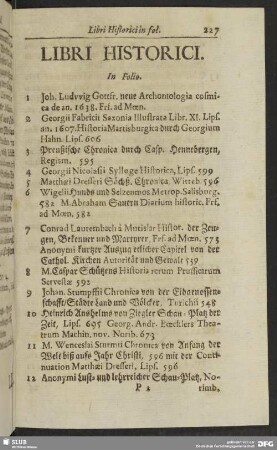 Libri Historici in fol. 227
LIBRI HISTORICI.
In Folio.
1 Joh. Ludvvig Gottfr. neue Archontologia cosmi-
ca de an. 1638. Frf. ad Mœn.
2 Georgii Fabricii Saxonia Illustrata Libr. XI. Lips.
an. 1607. Historia Martisburgica durch Georgium
Hahn. Lips. 606
3 Preußische Chronica durch Casp. Hennebergen,
Regiom. 595
4 Georgii Nicolasii Sylloge Historica, Lips. 599
5 Matthæi Dresseri Sächß. Chronica, Witteb. 596
6 Wigelii Hunds und Selzenmos Metrop. Salisburg.
582 M. Abraham Saurn Diarium historic. Frf.
ad Mœn. 582
7 Conrad Lautembach à Mutislor Histor. der Zeu-
gen, Bekenner und Martyrer, Frf. ad Mœn. 573
Anonymi kurtzer Auszug etlicher Capitel von der
Cathol. Kirchen Autorität und Gewalt 559
8 M. Caspar Schützens Historia rerum Prussicarum
Servestæ 592
9 Johan. Stumpffii Chronica von der Eidgenossen-
schafft/ Städte Land und Völcker. Turichii 548
10 Heinrich Anshelms von Ziegler Schau-Platz der
Zeit, Lips. 695 Georg. Andr. Bœckleri Thea-
trum Machin. nov. Norib. 673
11 M. Wenceslai Sturmii Chronica von Anfang der
Welt biß auffs Jahr Christi. 596 mit der Conti-
nuation Matthæi Dresseri, Lips. 596
12 Anonymi Lust- und lehrreicher Schau-Platz, No-
P 2 rimb.
SLUB
DFG